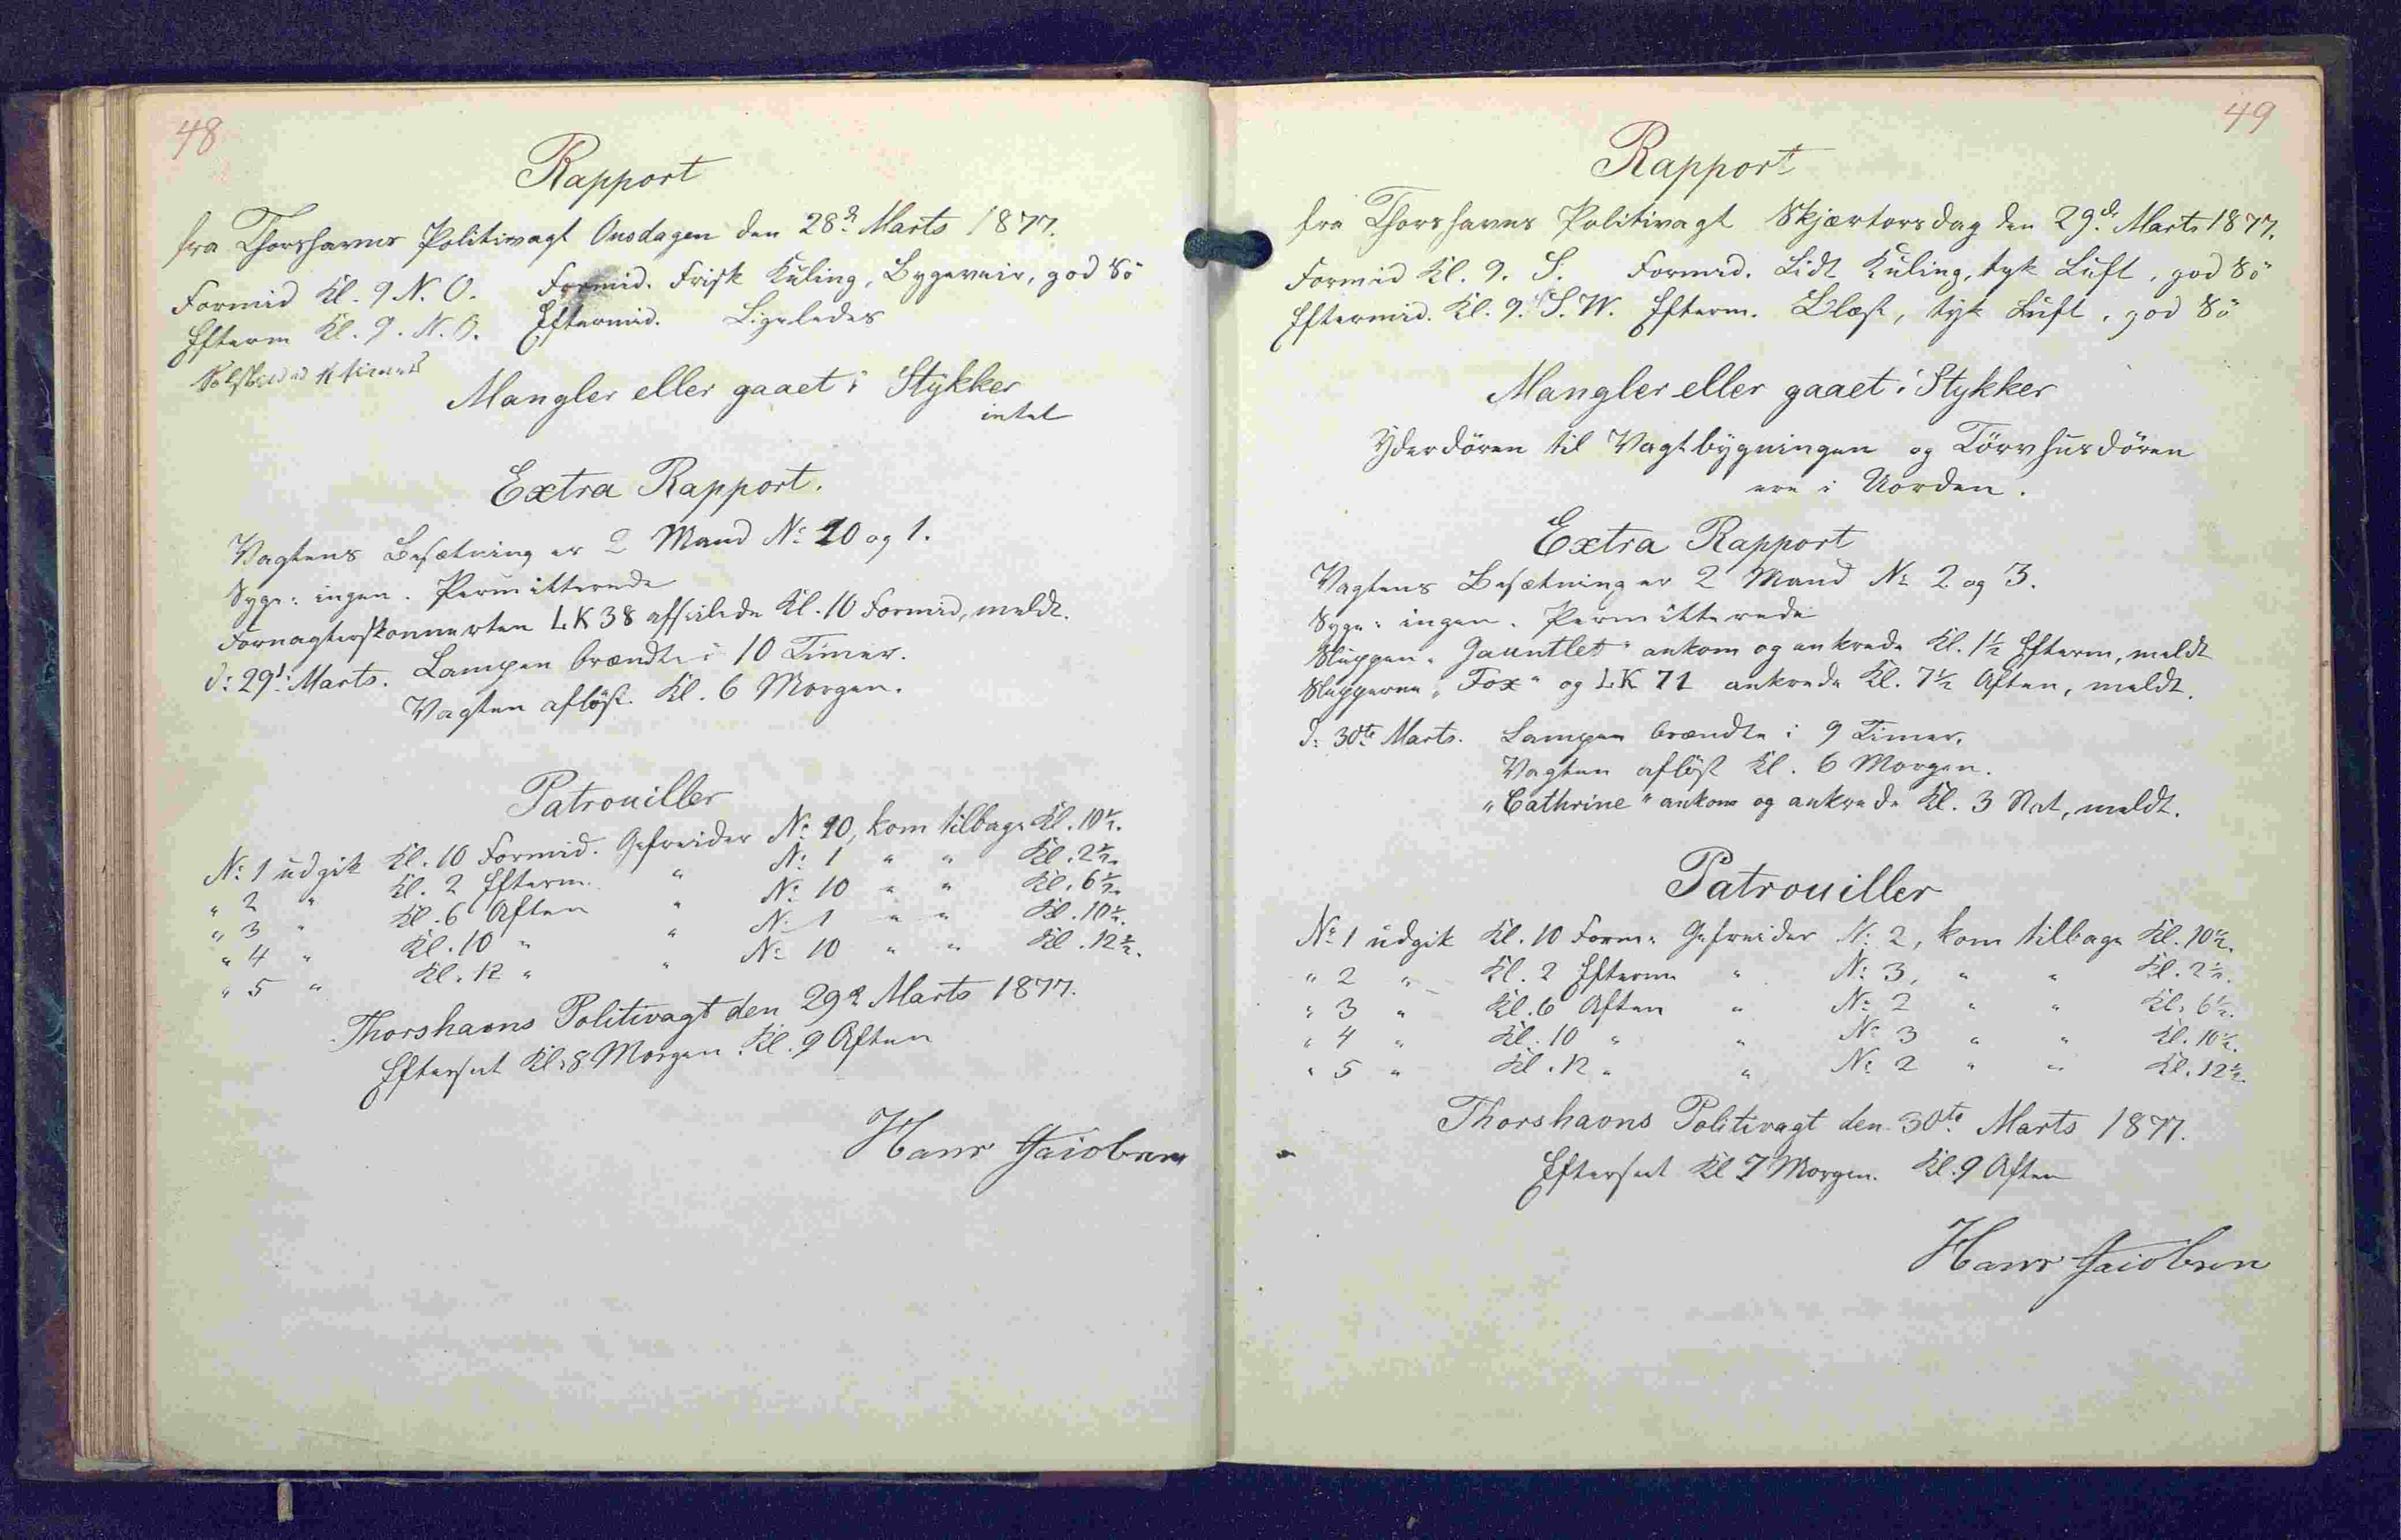 48
Rapport
fra Thorshavns Politivagt Onsdagen den 28d Marts 1877.
Formid Kl. 9 N. O. Formid. Frisk Kuling, Bygeveir, god Sö
Efterm Kl. 9. N. O. Eftermid. Ligeledes
Mangler eller gaaet i Stykker
intet
Extra Rapport.
Vagtens Besætning er 2 Mand No 10 og 1.
Syge: ingen. Permitterede
LK 38 afseilede Kl. 10 Formid, meldt.
d: 29d: Marts. Lampen brændte i 10 Timer.
Vagten aflöst Kl. 6 Morgen.
Patrouiller
No 1 udgik Kl. 10 Formid. Gefreider No 10, kom tilbage Kl. 10½.
" 2 " Kl. 2 Efterm. " No 1 " " Kl. 2½.
" 3 " Kl. 6 Aften " No 10 " " Kl. 6½.
" 4 " Kl. 10 " " No 1 " " Kl. 10½.
" 5 " Kl. 12 " " No 10 " " Kl. 12½.
Thorshavns Politivagt den 29d Marts 1877.
Efterseet Kl. 8 Morgen. Kl. 9 Aften
Hans Jacobsen
49
Rapport
fra Thorshavns Politivagt Skjærtorsdag den 29d. Marts 1877.
Formid Kl. 9. S. Formid. Lidt Kuling, tyk Luft, god Sö
Eftermid. Kl. 9. S. W. Efterm. Blæst, tyk Luft, god Sö
Mangler eller gaaet i Stykker
Yderdören til Vagtbygningen og Törvhusdören
ere i Uorden.
Extra Rapport
Vagtens Besætning er 2 Mand No 2 og 3.
Syge: ingen. Permitterede
Sluppen "Gauntlet" ankom og ankrede Kl. 1½ Efterm, meldt
Slupperne "Fox" og LK 71 ankrede Kl. 7½ Aften, meldt.
d: 30te Marts. Lampen brændte i 9 Timer.
Vagten aflöst Kl. 6 Morgen.
"Cathrine" ankom og ankrede Kl. 3 Nat, meldt.
Patrouiller
No 1 udgik Kl. 10 Form: Gefreider No 2, kom tilbage Kl. 10½.
" 2 " Kl. 2 Efterm " No 3, " " Kl. 2½.
" 3 " Kl. 6 Aften " No 2 " " Kl. 6½.
" 4 " Kl. 10 " " No 3 " " Kl. 10½.
" 5 " Kl. 12 " " No 2 " " Kl. 12½.
Thorshavns Politivagt den 30te Marts 1877.
Efterseet Kl 7 Morgen. Kl. 9 Aften
Hans Jacobsen